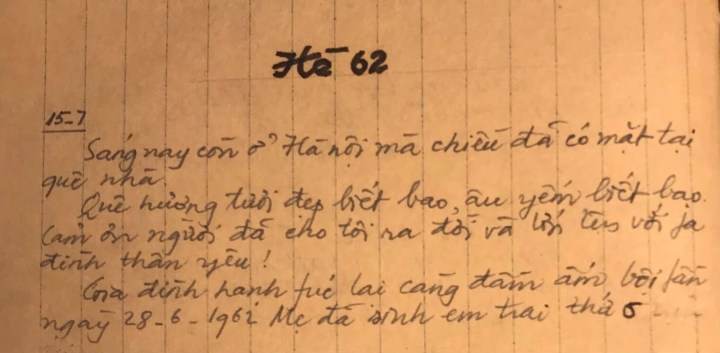 Hè 62
15-7
Sáng nay còn ở Hà nội mà chiều đã có mặt tại
quê nhà.
Quê hương tươi đẹp biết bao, âu yếm biết bao.
Cảm ơn người đã cho tôi ra đời và lớn lên với ja
đình thân yêu!
Gia đình hạnh fúc lại càng đầm ấm, bởi
ngày 28-6-1962 Mẹ đã sinh em trai thứ 5